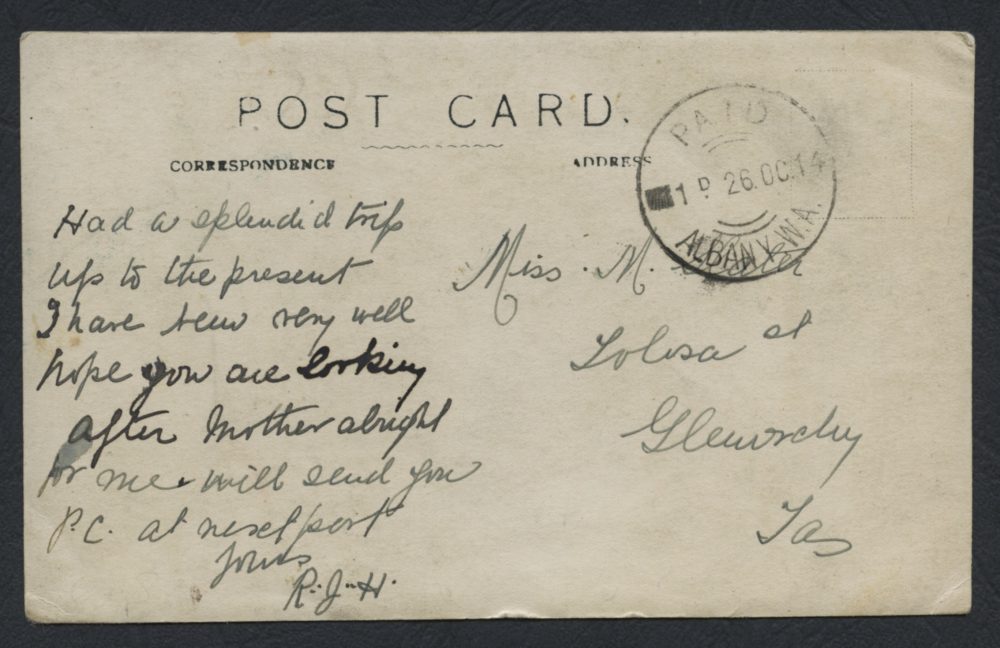 POST CARD.
CORRESPONDENCE
ADDRESS
PAID
1 P 26.OC.14
ALBANY. W.A.
Had a splendid trip
up to the present
I have been very well
hope you are looking
after Mother alright
for me. will send you
P.C. at next port
Yours
R. J. H.
Miss. M.
Lolosa st
Glenorchy
Tas